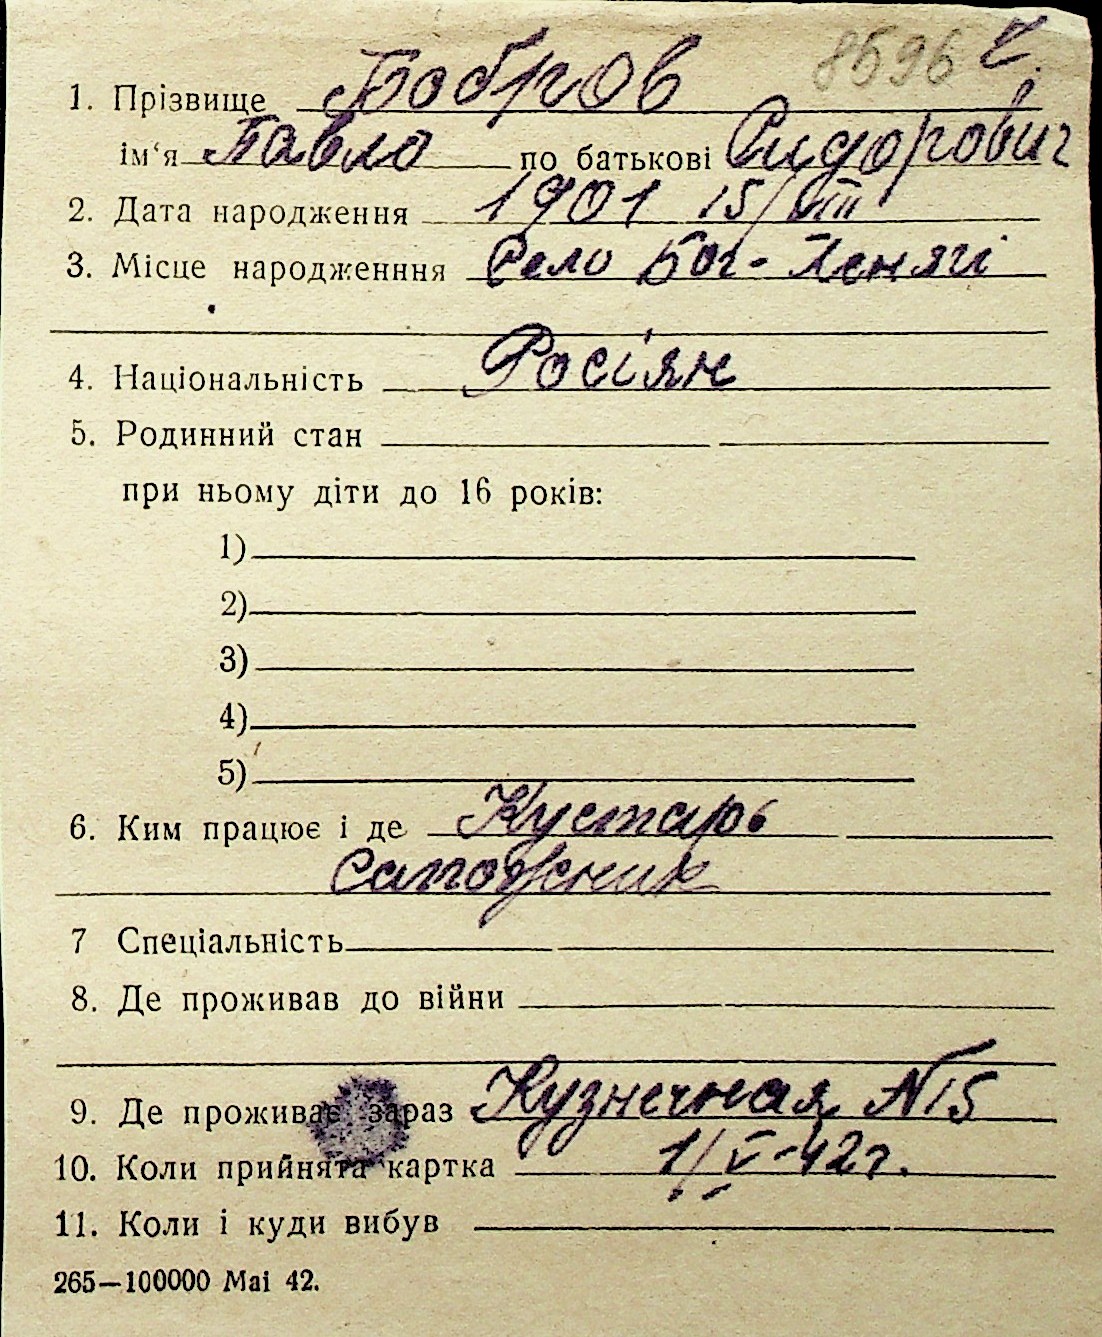 8596
1. Прізвище Бобров
ім'я Павло по батькові Сидорович
2. Дата народження 1901 15/VIII
3. Місце народженння Село Бог-
4. Національність Росіян
5. Родинний стан
при ньому діти до 16 років:
1)
2)
3)
4)
5)
6. Ким працює і де Кустарь
сапожник
7 Спеціальність
8. Де проживав до війни
9. Де проживає зараз Кузнечная N15
10. Коли прийнята картка 1/V-42г.
11. Коли і куди вибув
265—100000 Mai 42.